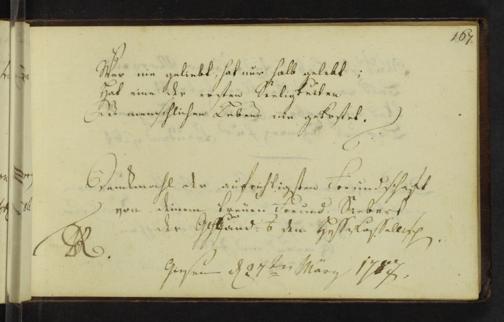 167.
Wer nie geliebt, hat nur halb gelebt;
Hat eine der ersten Seeligkeiten
Des menschlichen Lebens nie gekostet.
Denkmahl der aufrichtigsten Freundschaft
von deinem treuen Freund Siebert
der
d 27ten März 1787.